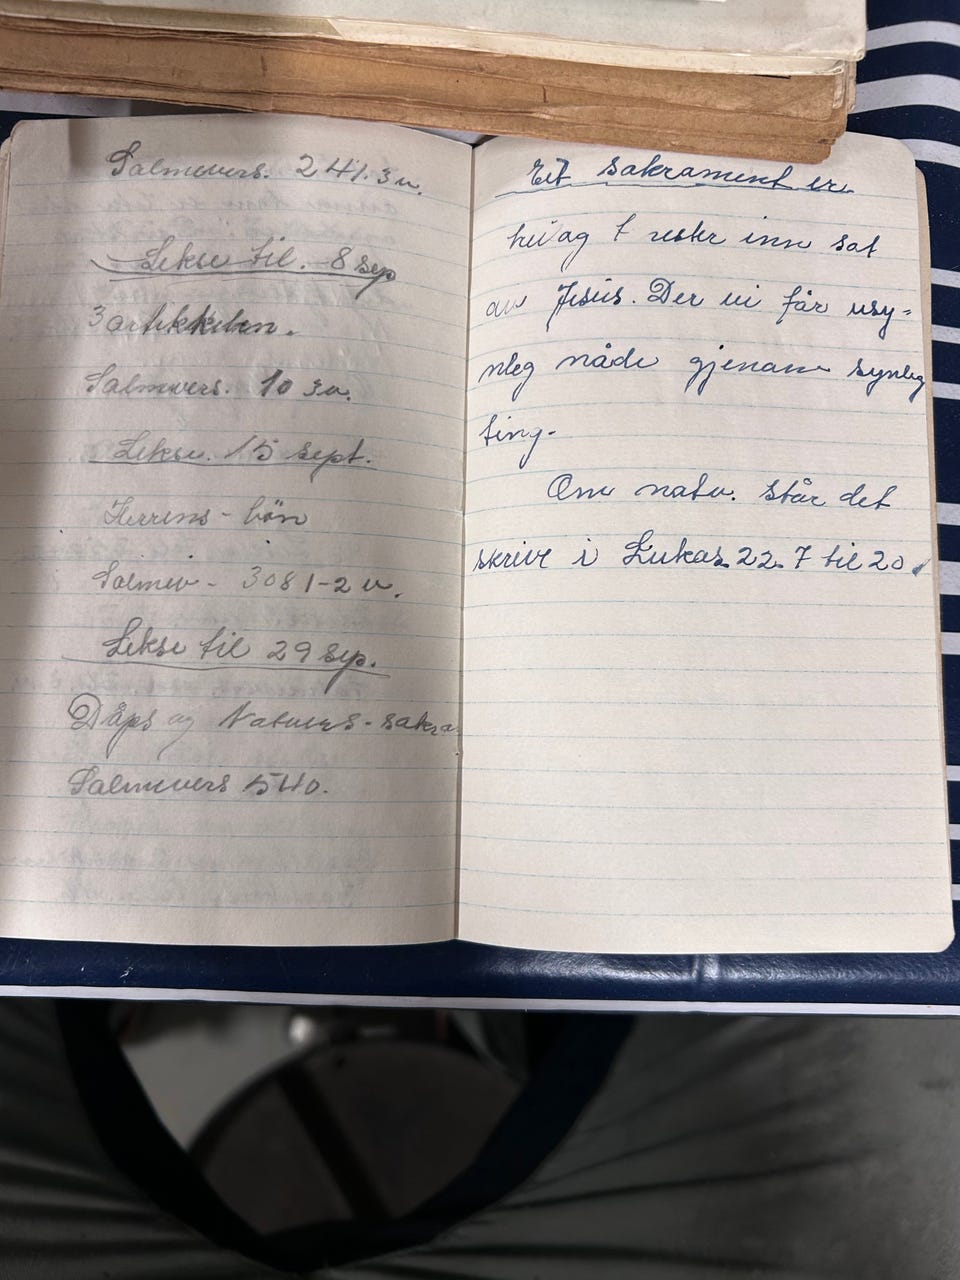 Salmevers. 241. 3 v.
Lekse til. 8 sep
3 artikkelen.
Salmevers. 10 3 v.
Lekse. 15 sept.
Herrens - bön
Salmev - 308 1-2 v.
Lekse til 29 sep.
Dåps og Natvers-sakra
Salmevers 540.
Eit sakrament er
inn sat
av Jesus. Der vi får usy=
nleg nåde gjenom synleg
ting.
Om natv. står det
skrive i Lukas 22. 7 til 20.